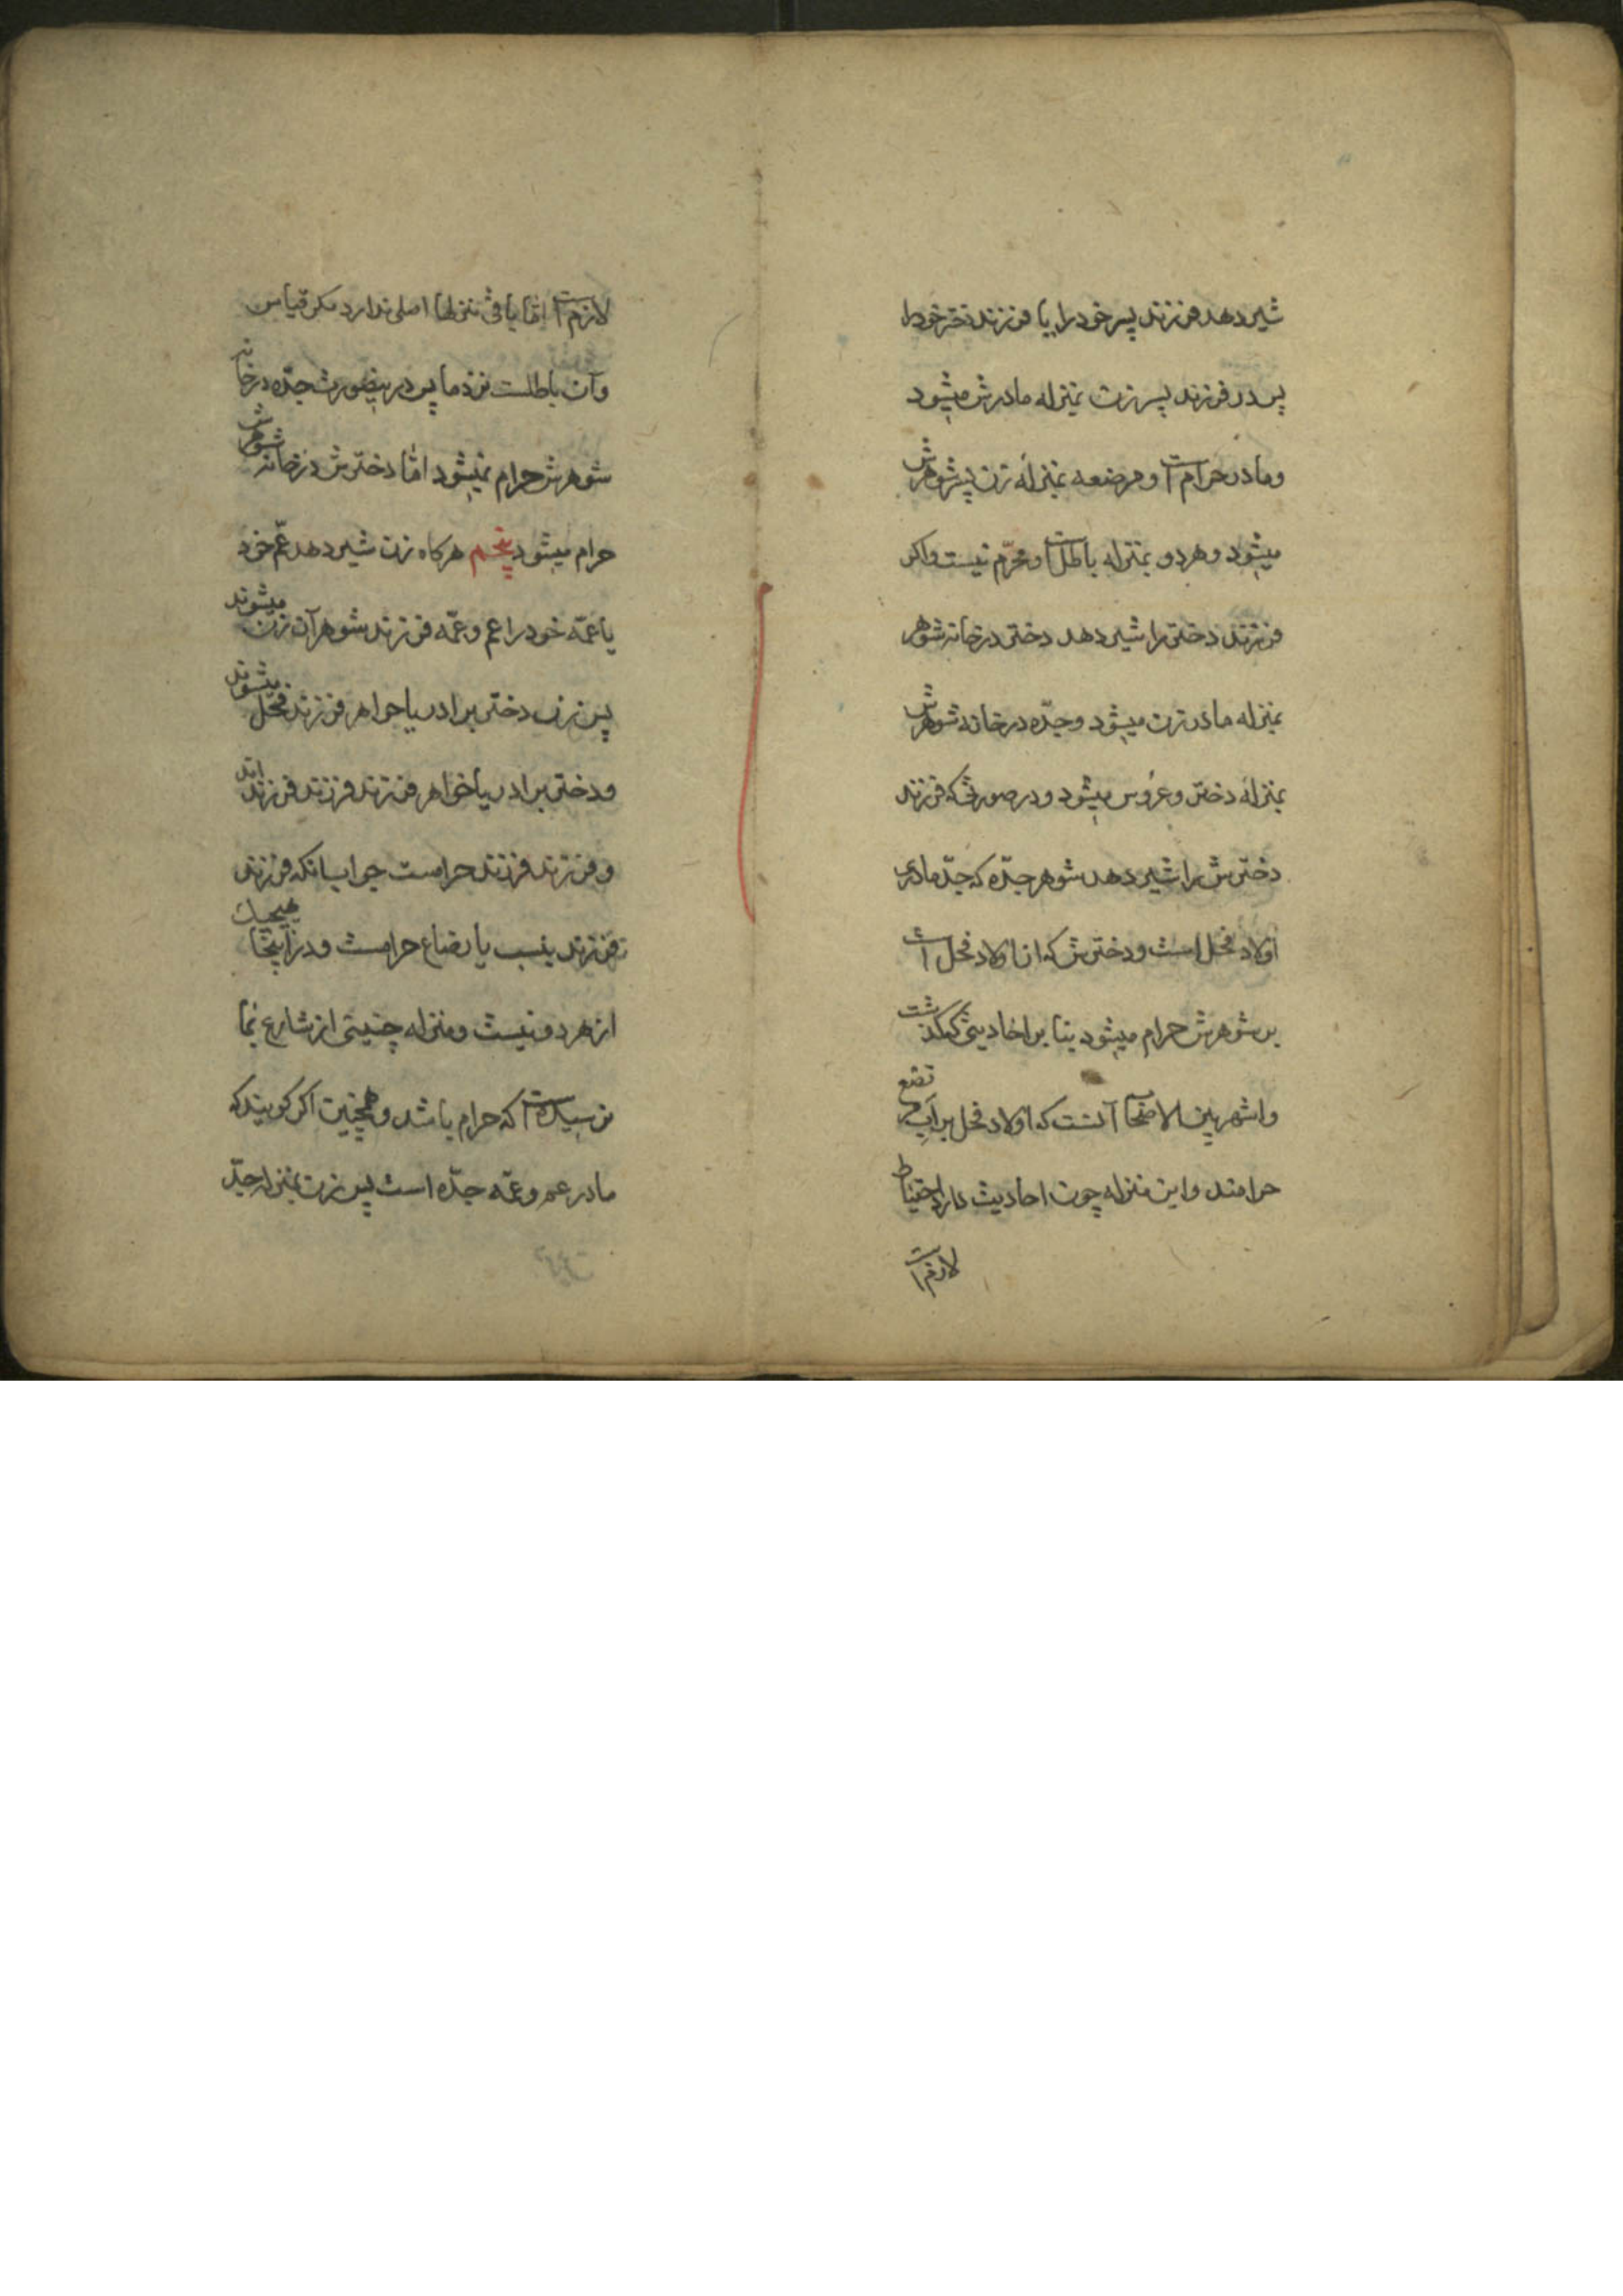 شیر دهد فرزند پسر خود را یا فرزند دختر خود را
پس در فرزند پسر زن بمنزله مادرش میشود
و مادر حرام است و مرضعه بمنزله زن پسر شوهرش
میشود و هر دو بمنزله باطل است و محرّم نیست و اکر
فرزند دختر را شیر دهد دختر در خانه شوهر
بمنزله مادر زن میشود و جدّه در خانه شوهرش
بمنزله دختر و عروس میشود و در صورتی که فرزند
دخترش را شیر دهد شوهر جدّه که جدّ مادری
اولاد فحل است و دخترش که از اولاد فحل است
بر شوهرش حرام میشود بنا بر احادیثی که گذشت
و اشهر بین الاصحاب آنست که اولاد فحل بر اب مرتضع
حرامند و این منزله چون احادیث دارد احتیاط
لازم است
لازم است امّا باقی منزلها اصلی ندارد مکر قیاس
و آن باطلست نزد ما پس در اینصورت جدّه در خانه
شوهرش حرام نمیشود امّا دخترش در خانه شوهرش
حرام میشود پنجم هرکاه زن شیر دهد عمّ خود
یا عمّه خود را عم و عمّه فرزند شوهر آن زن میشوند
پس زن دختر برادر یا خواهر فرزند فحل میشوند
و دختر برادر یا خواهر فرزند فرزند فرزند اند
و فرزند فرزند حرامست جواب آنکه فرزند
فرزند بنسب یا رضاع حرامست و در اینجا هیچیک
از هر دو نیست و منزله چنینی از شارع بما
نرسیده است که حرام باشد و همچنین اکر کویند که
مادر عم و عمّه جدّه است پس زن بمنزله جدّ